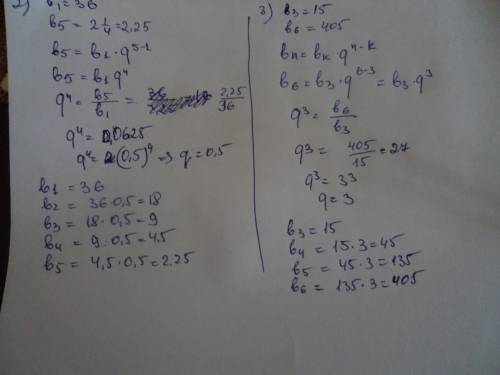 2) b₁ = 36
b₅ = 2 1/4 = 2,25
b₅ = b₁ · q⁵⁻¹
b₅ = b₁ q⁴
q⁴ = b₅/b₁ = 2,25/36
q⁴ = 0,0625
q⁴ = (0,5)⁴ => q = 0,5
b₁ = 36
b₂ = 36 · 0,5 = 18
b₃ = 18 · 0,5 = 9
b₄ = 9 · 0,5 = 4,5
b₅ = 4,5 · 0,5 = 2,25
3) b₃ = 15
b₆ = 405
bn = bk · qⁿ⁻ᵏ
b₆ = b₃ · q⁶⁻³ = b₃ · q³
q³ = b₆/b₃
q³ = 405/15 = 27
q³ = 3³
q = 3
b₃ = 15
b₄ = 15 · 3 = 45
b₅ = 45 · 3 = 135
b₆ = 135 · 3 = 405